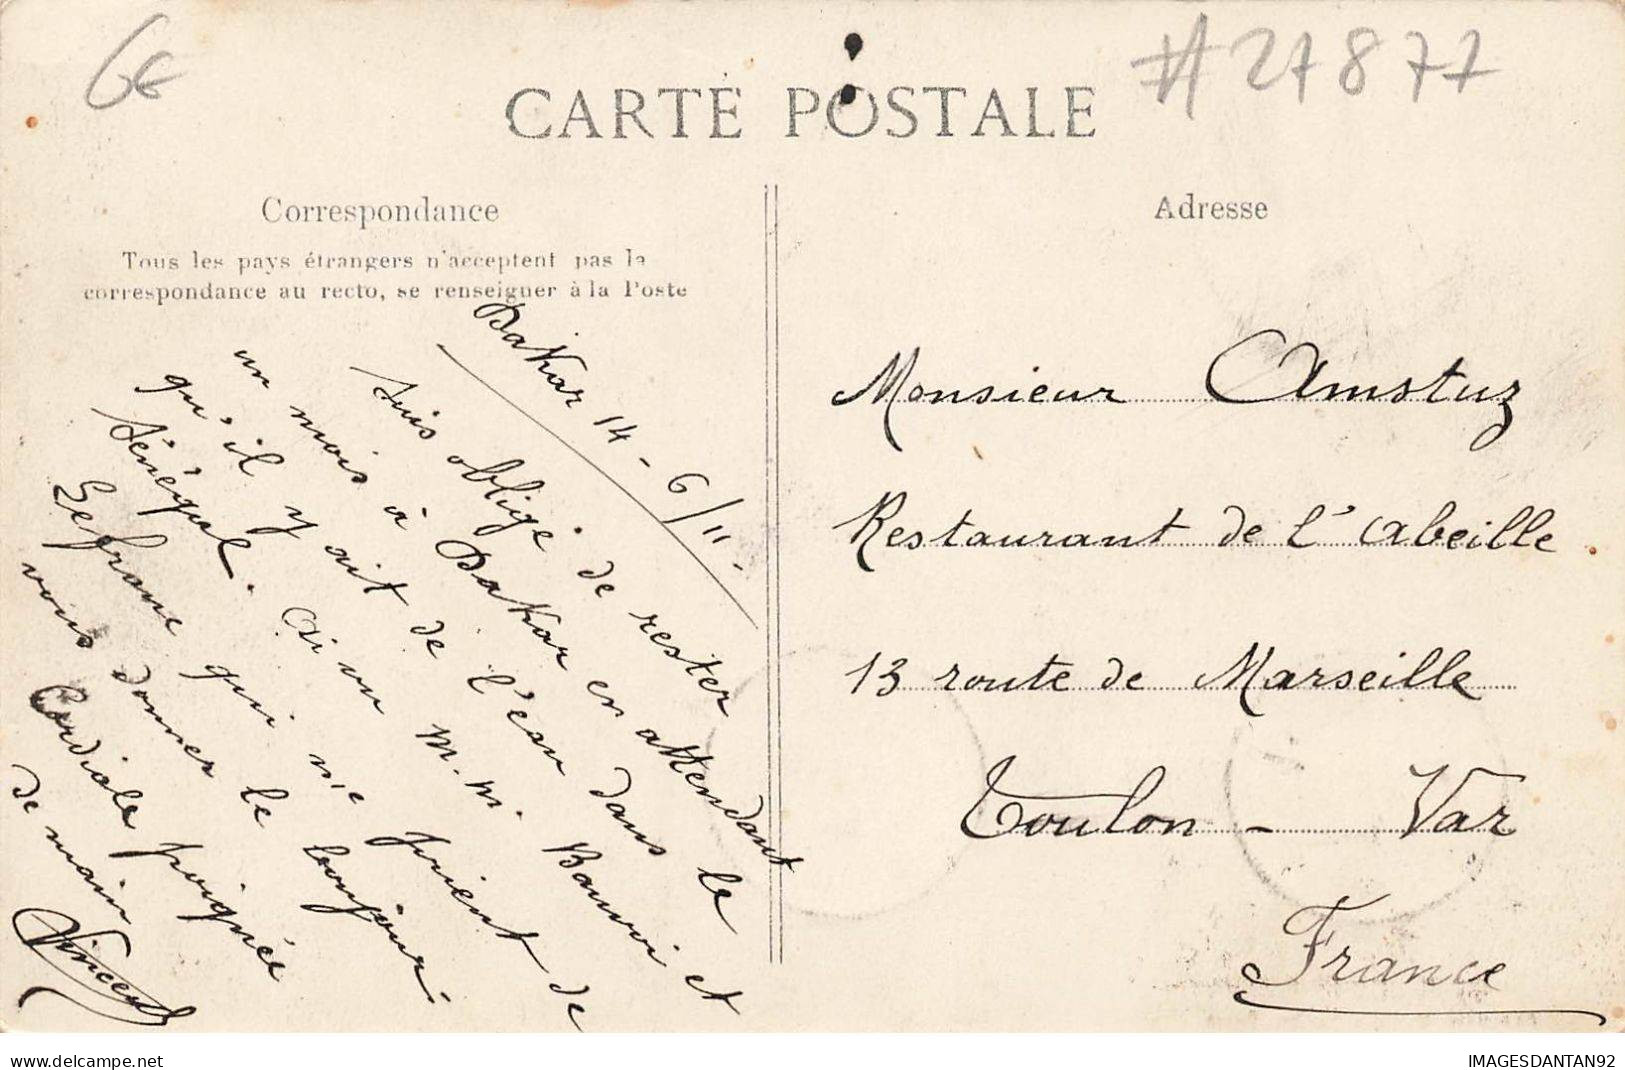 6€
#27877
CARTE POSTALE
Correspondance
Tous les pays étrangers n'acceptent pas la
correspondance au recto, se renseigner à la Poste
Dakar 14-6/11.
Suis obligé de rester
un mois à Dakar en attendant
qu'il y ait de l'eau dans le
Sénégal. Ai vu M.M. Bauvoi et
Lefranc qui me prient de
vous donner le bonjour.
Cordiale poignée
de main
Vincent
Adresse
Monsieur Amstuz
Restaurant de l'abeille.
13 route de Marseille
Toulon - Var
France
www.delcampe.net
IMAGESDANTAN92